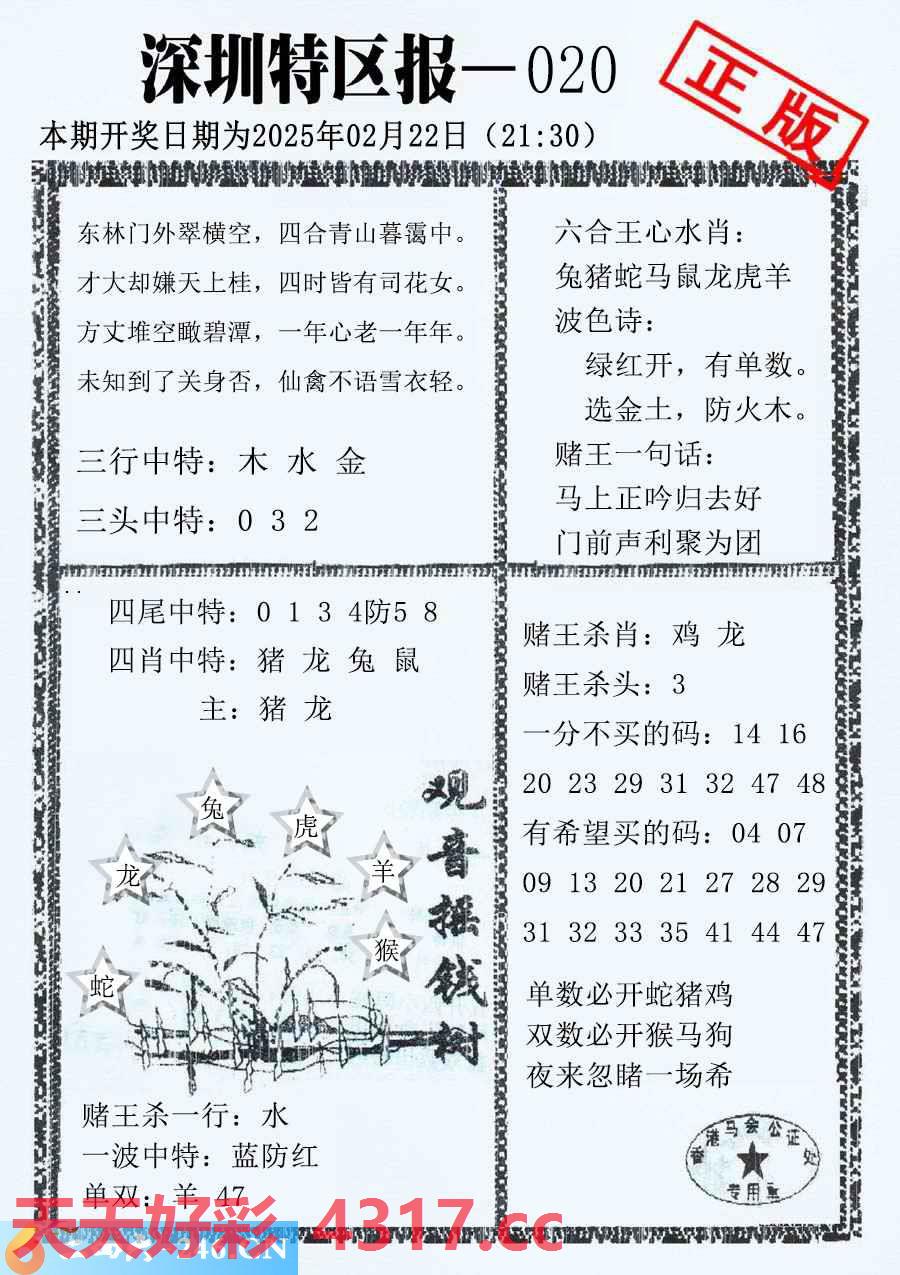 深圳特区报—020
正版
本期开奖日期为2025年02月22日（21:30）
东林门外翠横空，四合青山暮霭中。
才大却嫌天上桂，四时皆有司花女。
方丈堆空瞰碧潭，一年心老一年年。
未知到了关身否，仙禽不语雪衣轻。
三行中特：木 水 金
三头中特：0 3 2
六合王心水肖：
兔猪蛇马鼠龙虎羊
波色诗：
绿红开，有单数。
选金土，防火木。
赌王一句话：
马上正吟归去好
门前声利聚为团
四尾中特：0 1 3 4防5 8
四肖中特：猪 龙 兔 鼠
主：猪 龙
兔
虎
龙
羊
猴
蛇
观音摇钱树
赌王杀一行：水
一波中特：蓝防红
单双：羊 47
赌王杀肖：鸡 龙
赌王杀头：3
一分不买的码：14 16
20 23 29 31 32 47 48
有希望买的码：04 07
09 13 20 21 27 28 29
31 32 33 35 41 44 47
单数必开蛇猪鸡
双数必开猴马狗
夜来忽睹一场希
香港马会公证处
专用章
天天好彩 4317.cc